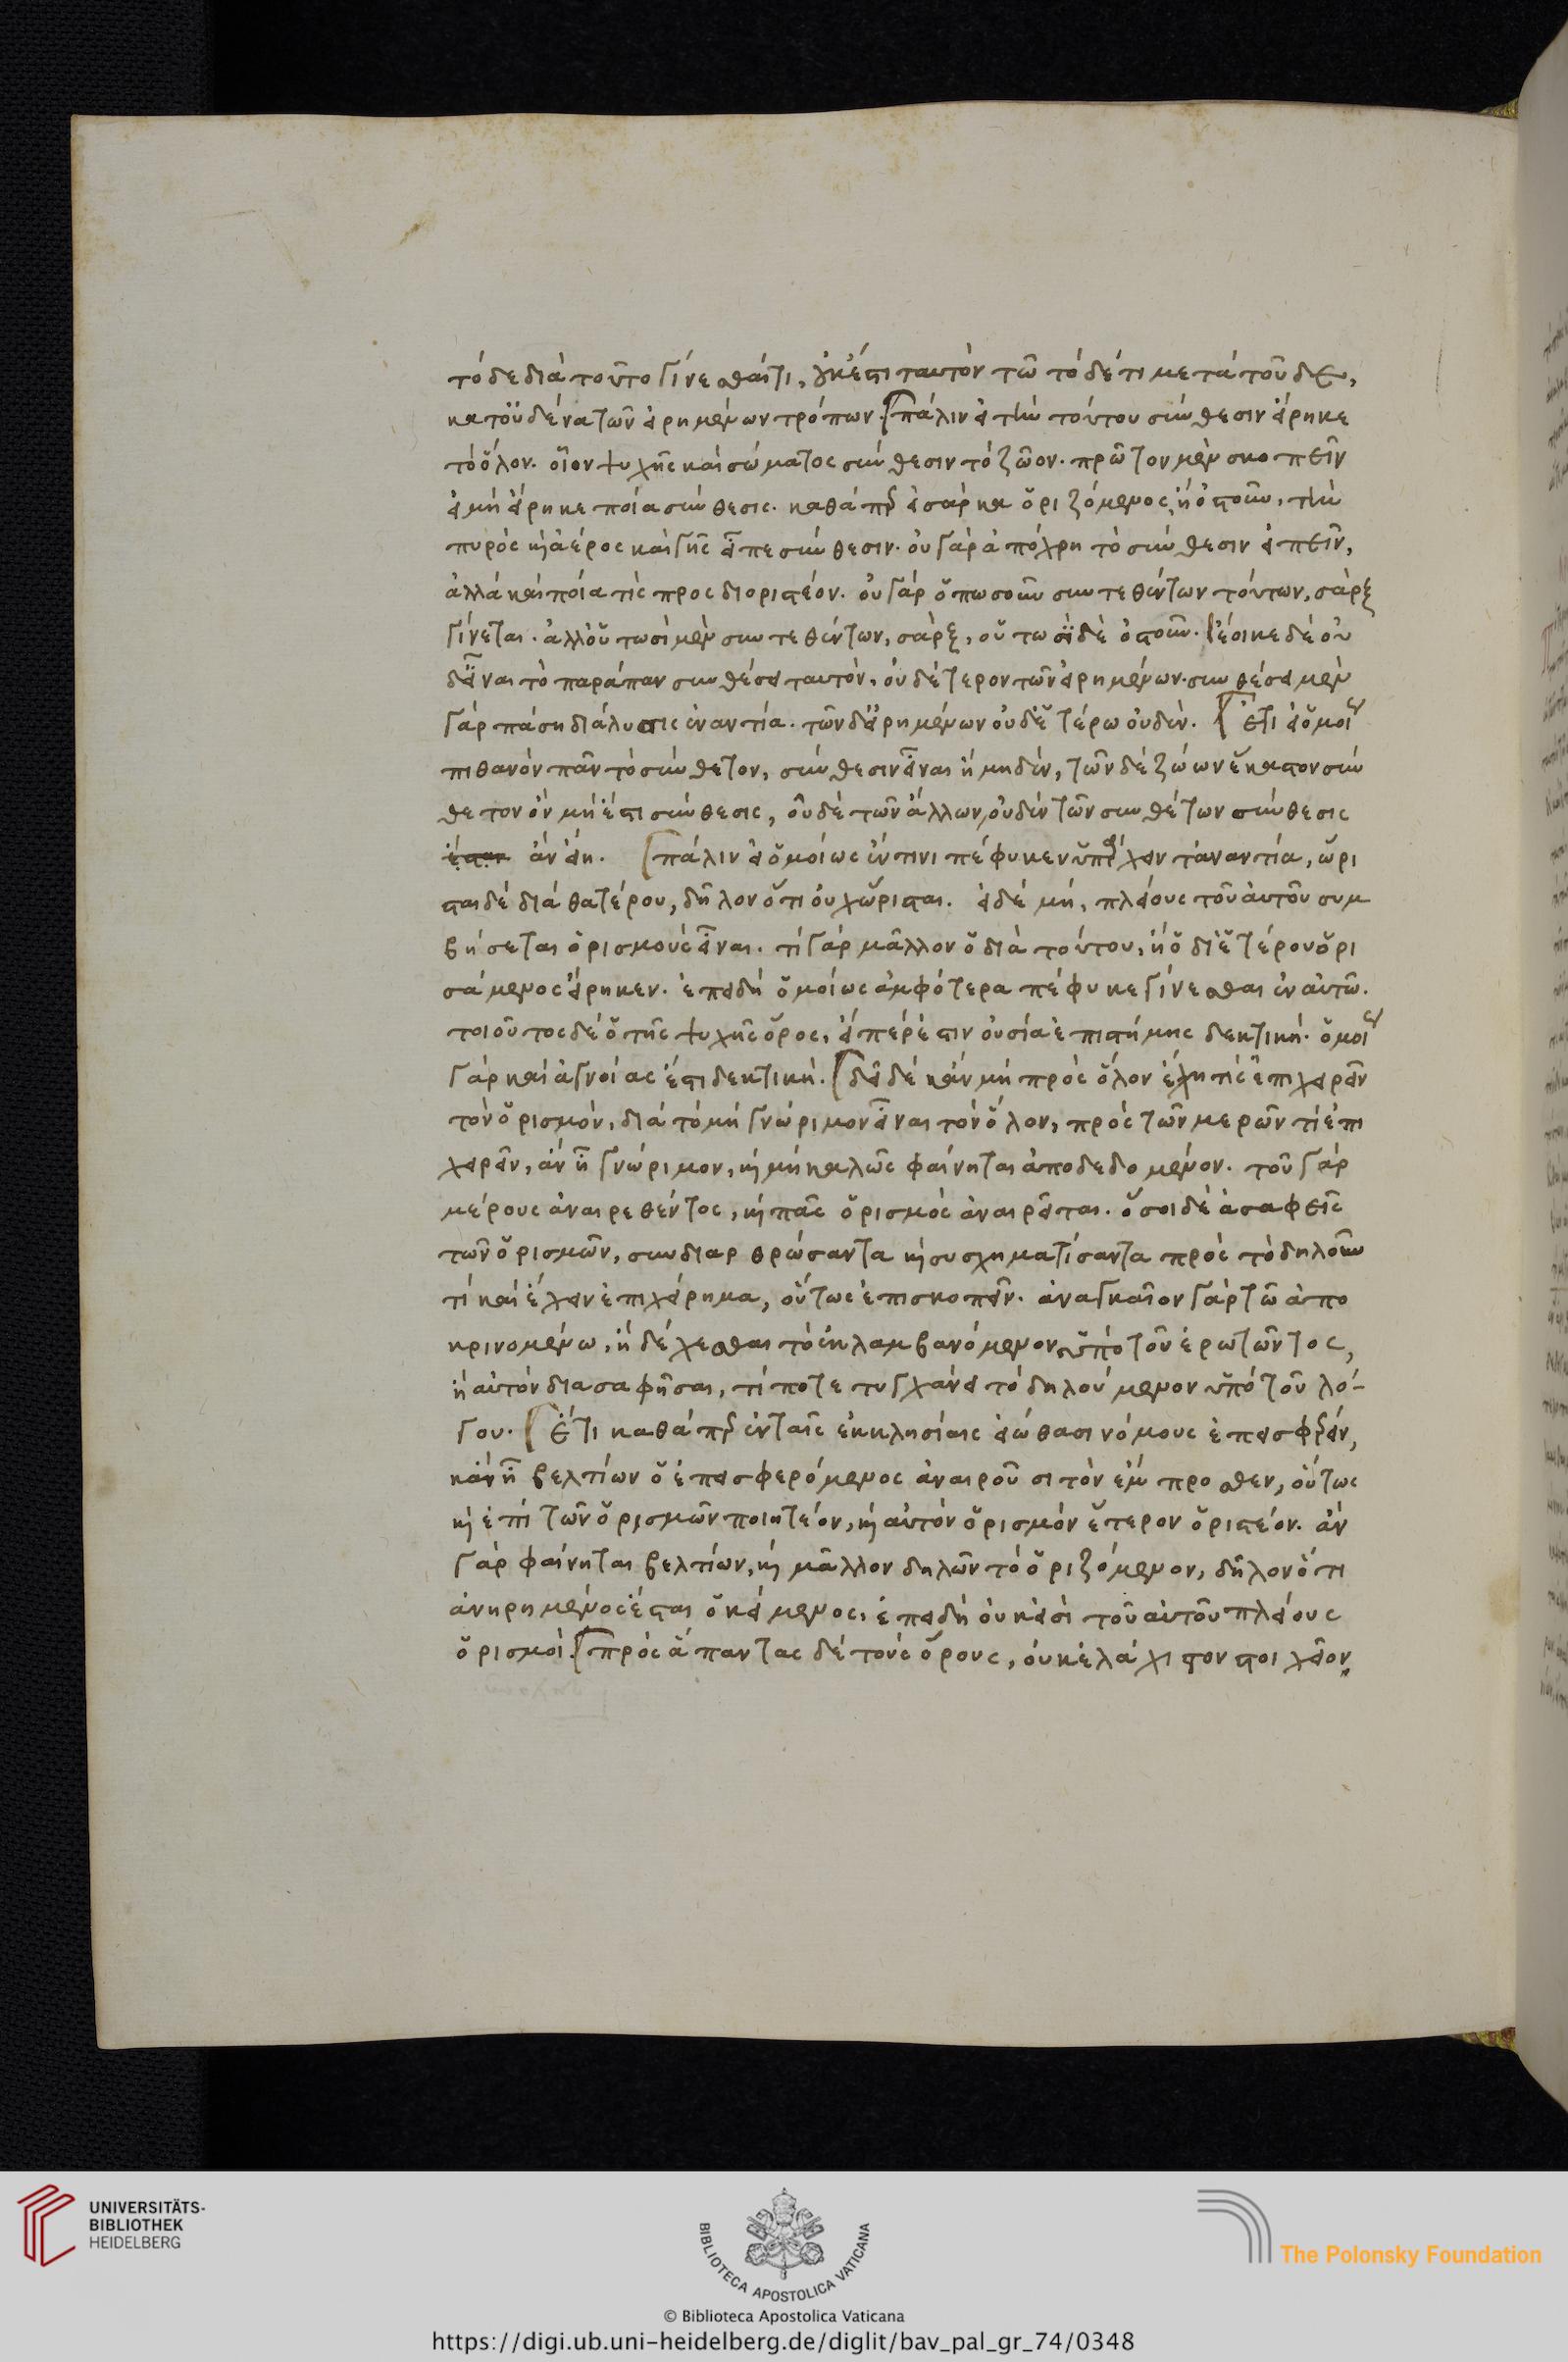 τόδε διὰ τοῦτο γίνεσθαί τι, οὐκ ἔστι ταυτὸν τῶ τόδέ τι μετὰ τοῦδε,
κατ' οὐδένα τῶν εἰρημένων τρόπων. [πάλιν εἰ τὴν τούτου σύνθεσιν εἴρηκε
τὸ ὅλον. οἷον ψυχῆς καὶ σώματος σύνθεσιν τὸ ζῶον. πρῶτον μὲν σκοπεῖν
εἰ μὴ εἴρηκε ποία σύνθεσις. καθάπερ εἰ σάρκα ὁριζόμενος, ἢ ὀστοῦν, τὴν
πυρὸς καὶ ἀέρος καὶ γῆς εἶπε σύνθεσιν. οὐ γὰρ ἀπόχρη τὸ σύνθεσιν εἰπεῖν,
ἀλλὰ καὶ ποία τίς προσδιοριστέον. οὐ γὰρ ὁπωσοῦν συντεθέντων τούτων, σὰρξ
γίνεται. ἀλλ' οὑτωσὶ μὲν συντεθέντων, σὰρξ, οὑτωσὶ δὲ ὀστοῦν. [ἔοικε δὲ οὐ
δ' εἶναι τὸ παράπαν συνθέσει ταυτὸν, οὐδέτερον τῶν εἰρημένων. συνθέσει μὲν
γὰρ πάση διάλυσις ἐναντία. τῶν δ' εἰρημένων οὐδετέρω οὐδέν. [ἔτι εἰ ὁμοίως
πιθανὸν πᾶν τὸ σύνθετον, σύνθεσιν εἶναι ἢ μηδὲν, τῶν δὲ ζώων ἕκαστον σύν
θετον ὂν μὴ ἔστι σύνθεσις, οὐδὲ τῶν ἄλλων οὐδὲν τῶν συνθέτων σύνθεσις
ἔσται ἂν εἴη. [πάλιν εἰ ὁμοίως ἔν τινι πέφυκεν ὑπάρχειν τἀναντία, ὥρι
σται δὲ διὰ θατέρου, δῆλον ὅτι οὐχ ὥρισται. εἰ δὲ μή, πλείους τοῦ αὐτοῦ συμ
βήσεται ὁρισμοὺς εἶναι. τί γὰρ μᾶλλον ὁ διὰ τούτου, ἢ ὁ δι' ἑτέρου ὁρι
σάμενος εἴρηκεν. ἐπειδὴ ὁμοίως ἀμφότερα πέφυκε γίνεσθαι ἐν αὐτῶ.
τοιοῦτος δὲ ὁ τῆς ψυχῆς ὅρος, εἴπερ ἐστὶν οὐσία ἐπιστήμης δεκτική. ὁμοίως
γὰρ καὶ ἀγνοίας ἐστὶ δεκτική. [δεῖ δὲ κἂν μὴ πρὸς ὅλον ἔχη τίς ἐπιχειρεῖν
τὸν ὁρισμὸν, διὰ τὸ μὴ γνώριμον εἶναι τὸν ὅλον, πρὸς τῶν μερῶν τί ἐπι
χειρεῖν, ἂν ἦ γνώριμον, καὶ μὴ καλῶς φαίνηται ἀποδεδομένον. τοῦ γὰρ
μέρους ἀναιρεθέντος, καὶ πᾶς ὁρισμὸς ἀναιρεῖται. ὅσοι δὲ ἀσαφεῖς
τῶν ὁρισμῶν, συνδιαρθρώσαντα καὶ συσχηματίσαντα πρὸς τὸ δηλοῦν
τί καὶ ἔχειν ἐπιχείρημα, οὕτως ἐπισκοπεῖν. ἀναγκαῖον γὰρ τῶ ἀπο
κρινομένω, ἢ δέχεσθαι τὸ ἐκλαμβανόμενον ὑπὸ τοῦ ἐρωτῶντος,
ἢ αὐτὸν διασαφῆσαι, τί ποτε τυγχάνει τὸ δηλούμενον ὑπὸ τοῦ λό-
γου. [ἔτι καθάπερ ἐν ταῖς ἐκκλησίαις εἰώθασι νόμους ἐπεισφέρειν,
κἂν ἦ βελτίων ὁ ἐπεισφερόμενος ἀναιροῦσι τὸν ἔμπροσθεν, οὕτως
καὶ ἐπὶ τῶν ὁρισμῶν ποιητέον, καὶ αὐτὸν ὁρισμὸν ἕτερον ὁριστέον. ἂν
γὰρ φαίνηται βελτίων, καὶ μᾶλλον δηλῶν τὸ ὁριζόμενον, δῆλον ὅτι
ἀνηρημένος ἔσται ὁ κείμενος, ἐπειδὴ οὐκ εἰσὶ τοῦ αὐτοῦ πλείους
ὁρισμοί. [πρὸς ἅπαντας δὲ τοὺς ὅρους, οὐκ ἐλάχιστον στοιχεῖον
UNIVERSITÄTS-
BIBLIOTHEK
HEIDELBERG
BIBLIOTECA APOSTOLICA VATICANA
The Polonsky Foundation
© Biblioteca Apostolica Vaticana
https://digi.ub.uni-heidelberg.de/diglit/bav_pal_gr_74/0348